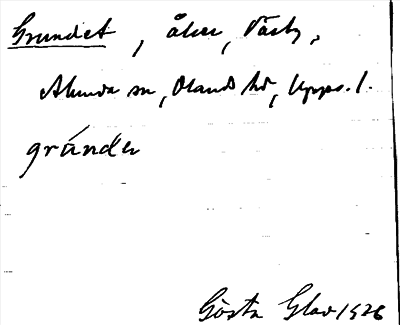 Grundet, åker, Väsby,
Alunda sn, Olands hd, Upps. l.
gränden
Gösta Glav 1926